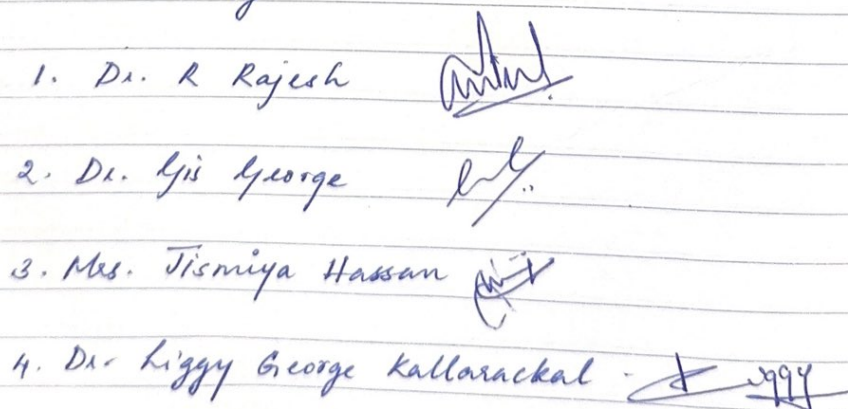 1. Dr. R Rajesh
2. Dr. Gis George
3. Mrs. Jismiya Hassan
4. Dr. Liggy George Kallarackal - Liggy